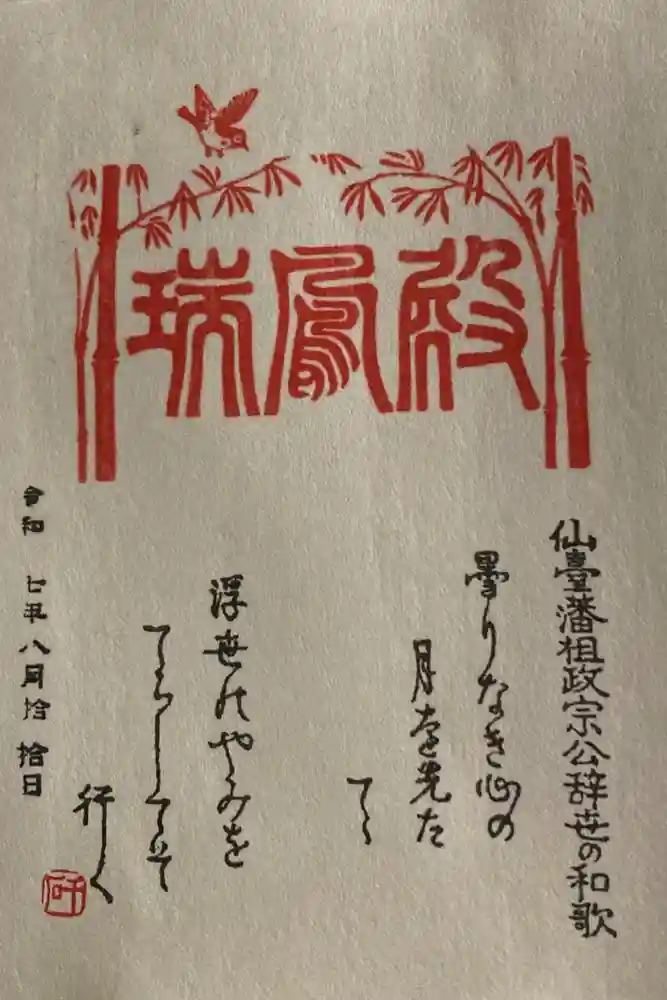 瑞鳳殿
仙臺藩祖政宗公辞世の和歌
曇りなき心の
月を先た
てゝ
浮世のやみを
てらしてそ
行く
令和 七年 八月拾 拾日